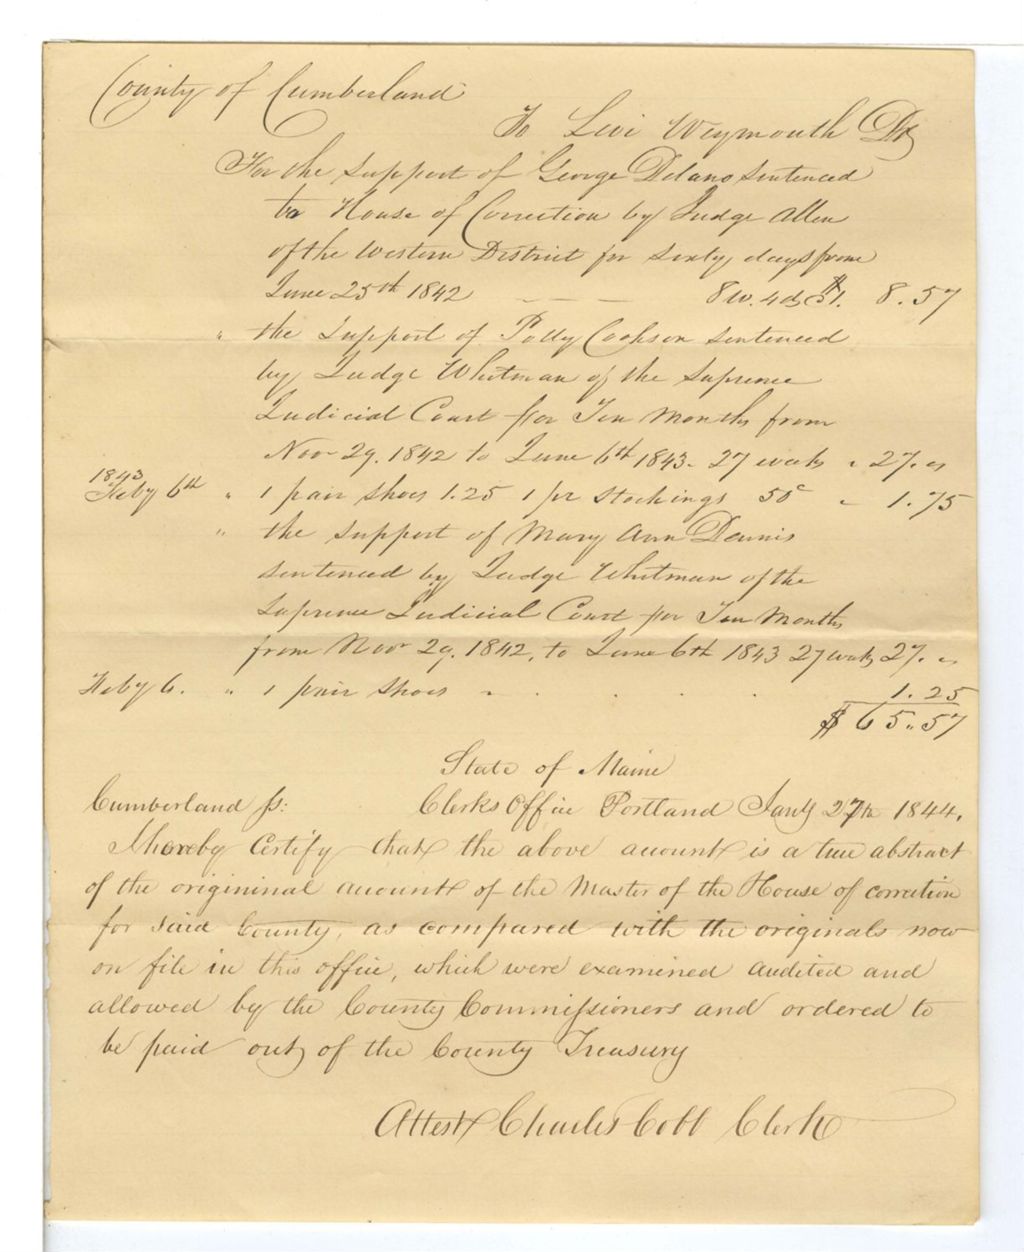 County of Cumberland
To Levi Weymouth Dr
For the support of George Delano sentenced
to House of Correction by Judge Allen
of the Western District for sixty days from
June 25th 1842 - - - 8 w. 4 ds $1. 8.57
" the Support of Polly Cookson sentenced
by Judge Whitman of the Supreme
Judicial Court for Ten Months from
Nov 29. 1842 to June 6th 1843. 27 weeks " 27.
1843
Feby 6th " 1 pair Shoes 1.25 1 pr Stockings 50c " 1.75
" the support of Mary Ann Dennis
sentenced by Judge Whitman of the
Supreme Judicial Court for Ten Months
from Nov 29. 1842, to June 6th 1843 27 weeks 27.
Feby 6. " 1 pair Shoes " . . . . 1.25
$65.57
State of Maine
Cumberland ss: Clerks Office Portland Jany 27th 1844.
I hereby Certify that the above account is a true abstract
of the origininal account of the Master of the House of correction
for said County, as compared with the originals now
on file in this office, which were examined audited and
allowed by the County Commissioners and ordered to
be paid out of the County Treasury
Attest Charles Cobb Clerk